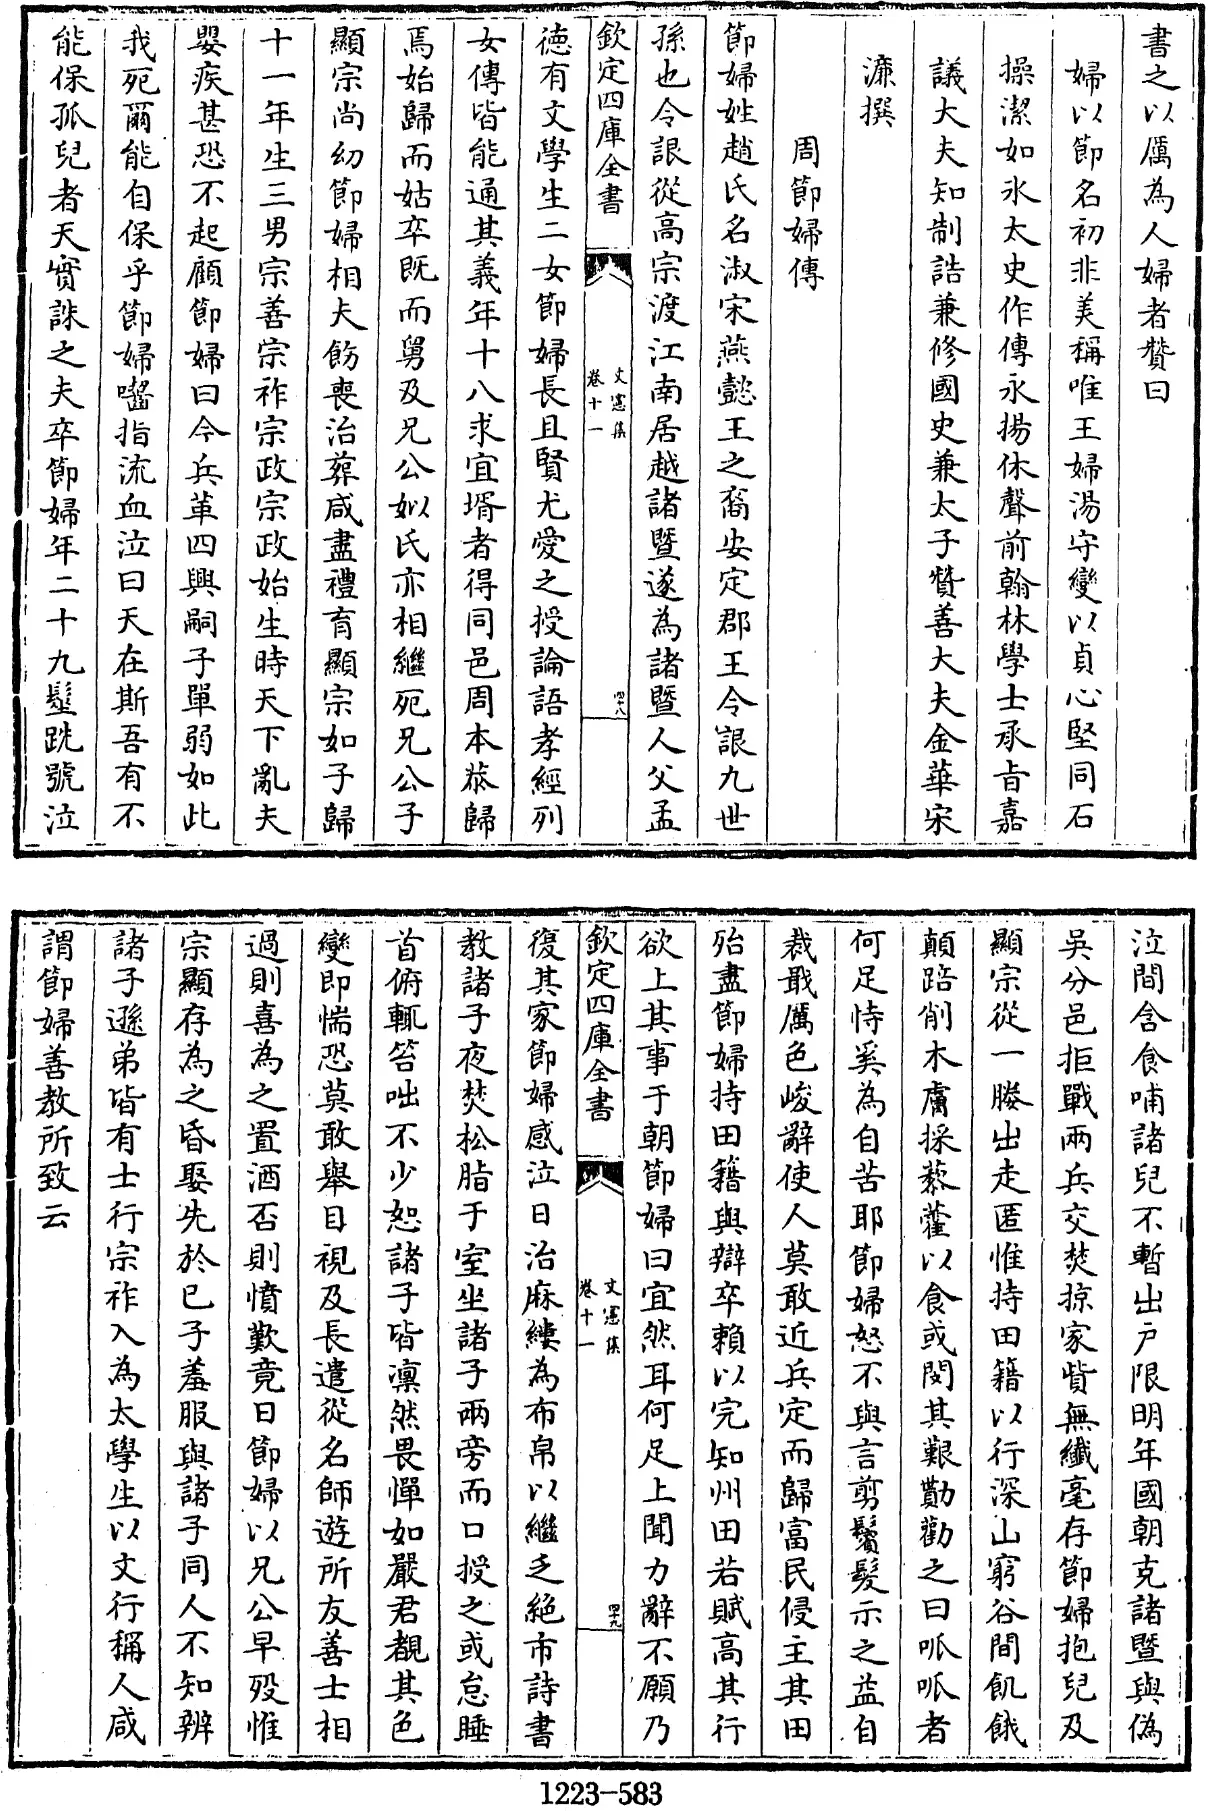 書之以厲為人婦者贊曰
婦以節名初非美稱唯王婦湯守變以貞心堅同石
操潔如氷太史作傳永揚休聲前翰林學士承㫖嘉
議大夫知制誥兼修國史兼太子贊善大夫金華宋
濓撰
周節婦傳
節婦姓趙氏名淑宋燕懿王之裔安定郡王令詪九世
孫也令詪從高宗渡江南居越諸暨遂為諸暨人父孟
欽定四庫全書
文憲集
卷十一
四十八
徳有文學生二女節婦長且賢尤愛之授論語孝經列
女傳皆能通其義年十八求宜壻者得同邑周本㳟歸
焉始歸而姑卒既而舅及兄公姒氏亦相繼死兄公子
顯宗尚幼節婦相夫飭喪治葬咸盡禮育顯宗如子歸
十一年生三男宗善宗祚宗政宗政始生時天下亂夫
嬰疾甚恐不起顧節婦曰今兵革四興嗣子單弱如此
我死爾能自保乎節婦囓指流血泣曰天在斯吾有不
能保孤兒者天實誅之夫卒節婦年二十九髽跣號泣
泣間含食哺諸兒不暫出戶限明年國朝克諸暨與偽
吳分邑拒戰兩兵交焚掠家貲無纖毫存節婦抱兒及
顯宗從一媵出走匿惟持田籍以行深山窮谷間飢餓
顛踣削木膚採藜藿以食或閔其艱勤勸之曰呱呱者
何足恃奚為自苦耶節婦怒不與言剪鬢髮示之益自
裁戢厲色峻辭使人莫敢近兵定而歸富民侵主其田
殆盡節婦持田籍與辯卒賴以完知州田若賦高其行
欲上其事于朝節婦曰宜然耳何足上聞力辭不願乃
欽定四庫全書
文憲集
卷十一
四十九
復其家節婦感泣日治麻縷為布帛以繼乏絶市詩書
教諸子夜焚松脂于室坐諸子兩旁而口授之或怠睡
首俯輒笞咄不少恕諸子皆凛然畏憚如嚴君覩其色
變即惴恐莫敢舉目視及長遣從名師遊所友善士相
過則喜為之置酒否則憤歎竟日節婦以兄公早殁惟
宗顯存為之昏娶先於已子羞服與諸子同人不知辨
諸子遜弟皆有士行宗祚入為太學生以文行稱人咸
謂節婦善教所致云
1223-583